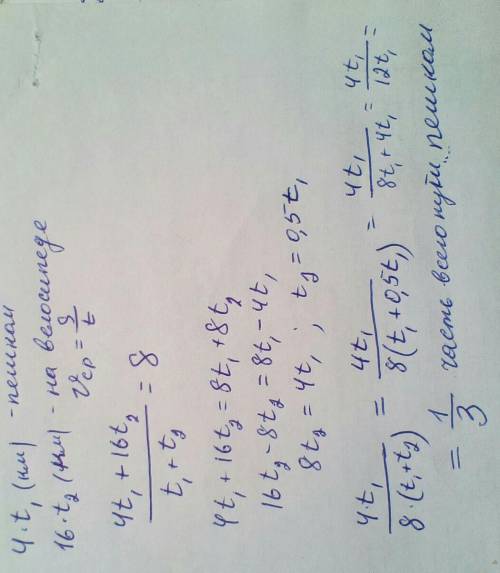 4·t₁ (км) - пешком
16·t₂ (км) - на велосипеде
υср = S/t
(4t₁ + 16t₂)/(t₁ + t₂) = 8
4t₁ + 16t₂ = 8t₁ + 8t₂
16t₂ - 8t₂ = 8t₁ - 4t₁
8t₂ = 4t₁ ; t₂ = 0,5t₁
4·t₁/(8·(t₁+t₂)) = 4t₁/(8(t₁+0,5t₁)) = 4t₁/(8t₁+4t₁) = 4t₁/(12t₁) =
= 1/3 часть всего пути пешком